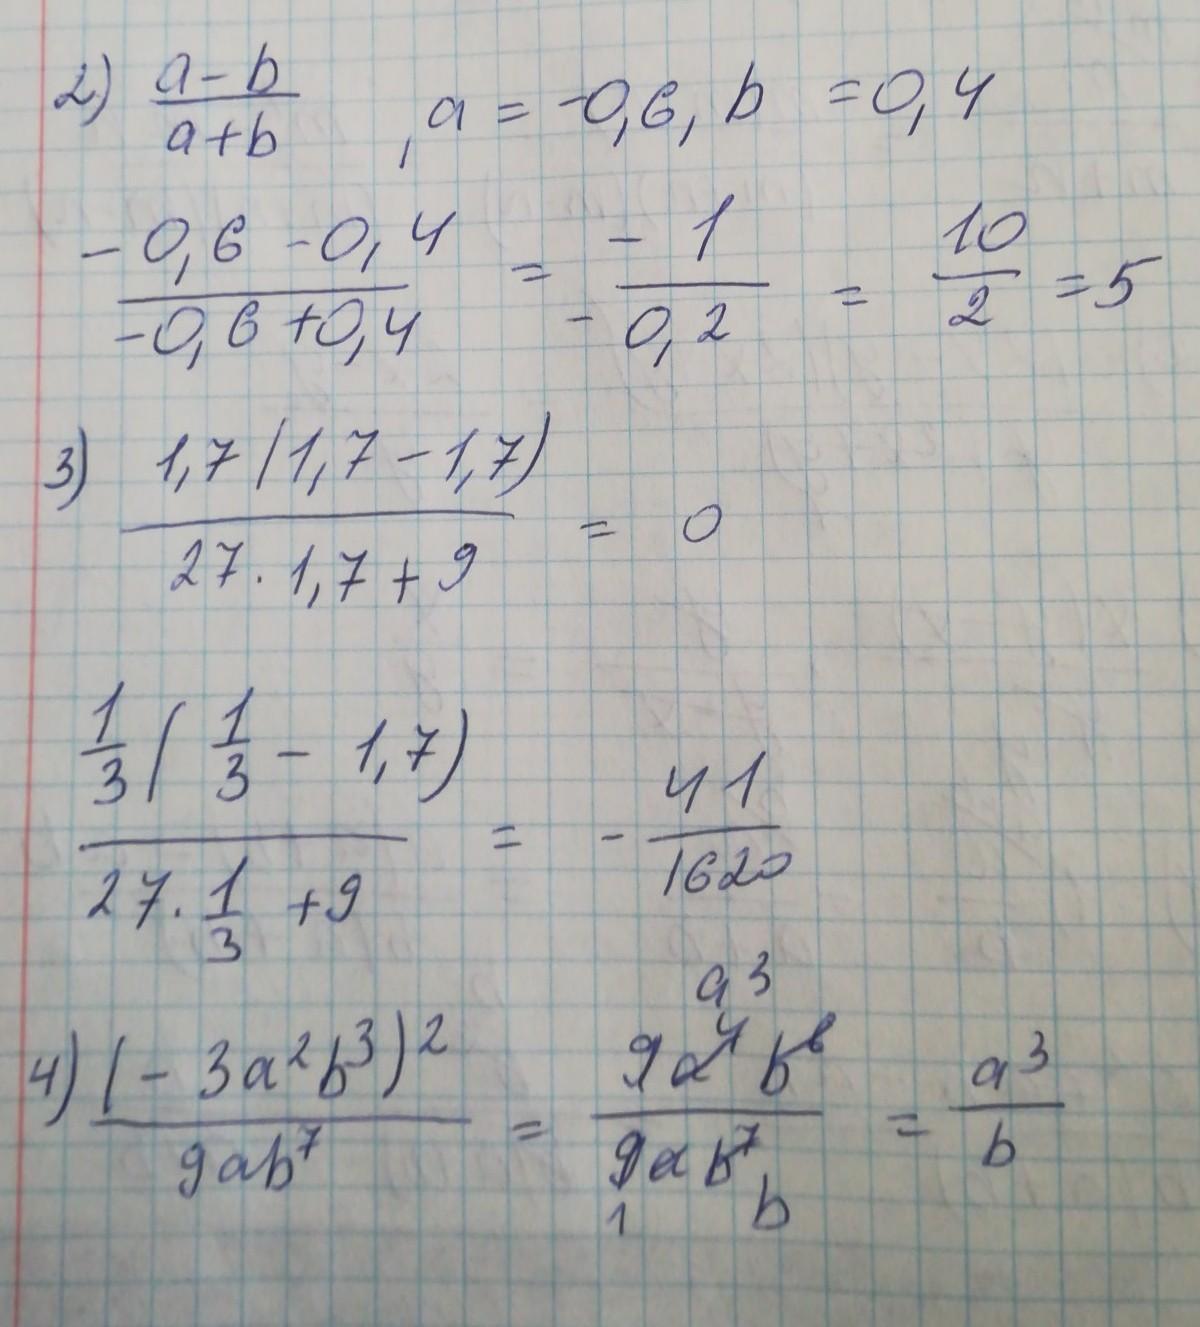 2) (a-b)/(a+b) , a = -0,6, b = 0,4
(-0,6 -0,4)/(-0,6 +0,4) = (-1)/(-0,2) = 10/2 = 5
3) (1,7(1,7 - 1,7))/(27 · 1,7 + 9) = 0
(1/3(1/3 - 1,7))/(27 · 1/3 + 9) = - 41/1620
a³
4) (-3a²b³)²/(9ab⁷) = (9a⁴b⁶)/(9ab⁷) = a³/b
1 b